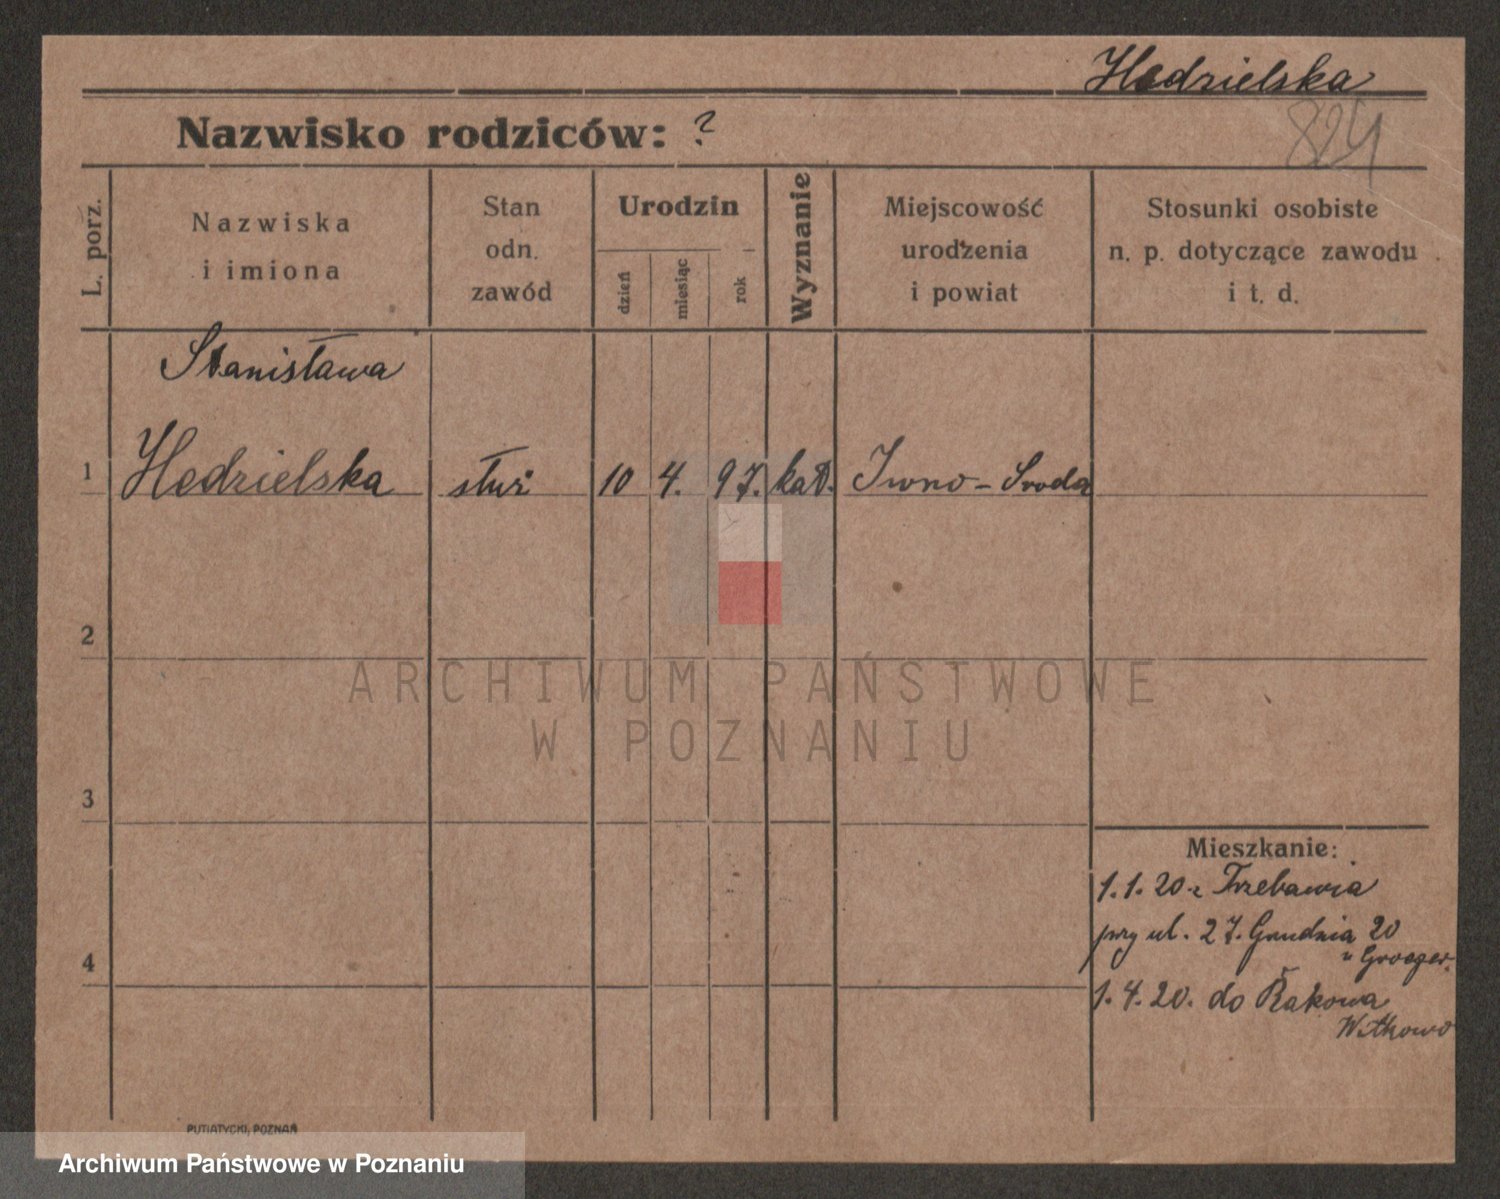 Hedzielska
824
Nazwisko rodziców: ?
L. porz.
Nazwiska
i imiona
Stan
odn.
zawód
Urodzin
dzień
miesiąc
rok
Wyznanie
Miejscowość
urodzenia
i powiat
Stosunki osobiste
n. p. dotyczące zawodu
i t. d.
Stanisława
1 Hedzielska służ 10 4. 97. kat. Iwno - Sroda
2
ARCHIWUM PAŃSTWOWE
W POZNANIU
3
Mieszkanie:
1.1.20 z Trzebawia
przy ul. 27. Grudnia 20
4
u Groeger.
1.4.20. do Rakowa
Witkowo
PUTIATYCKI, POZNAŃ
Archiwum Państwowe w Poznaniu